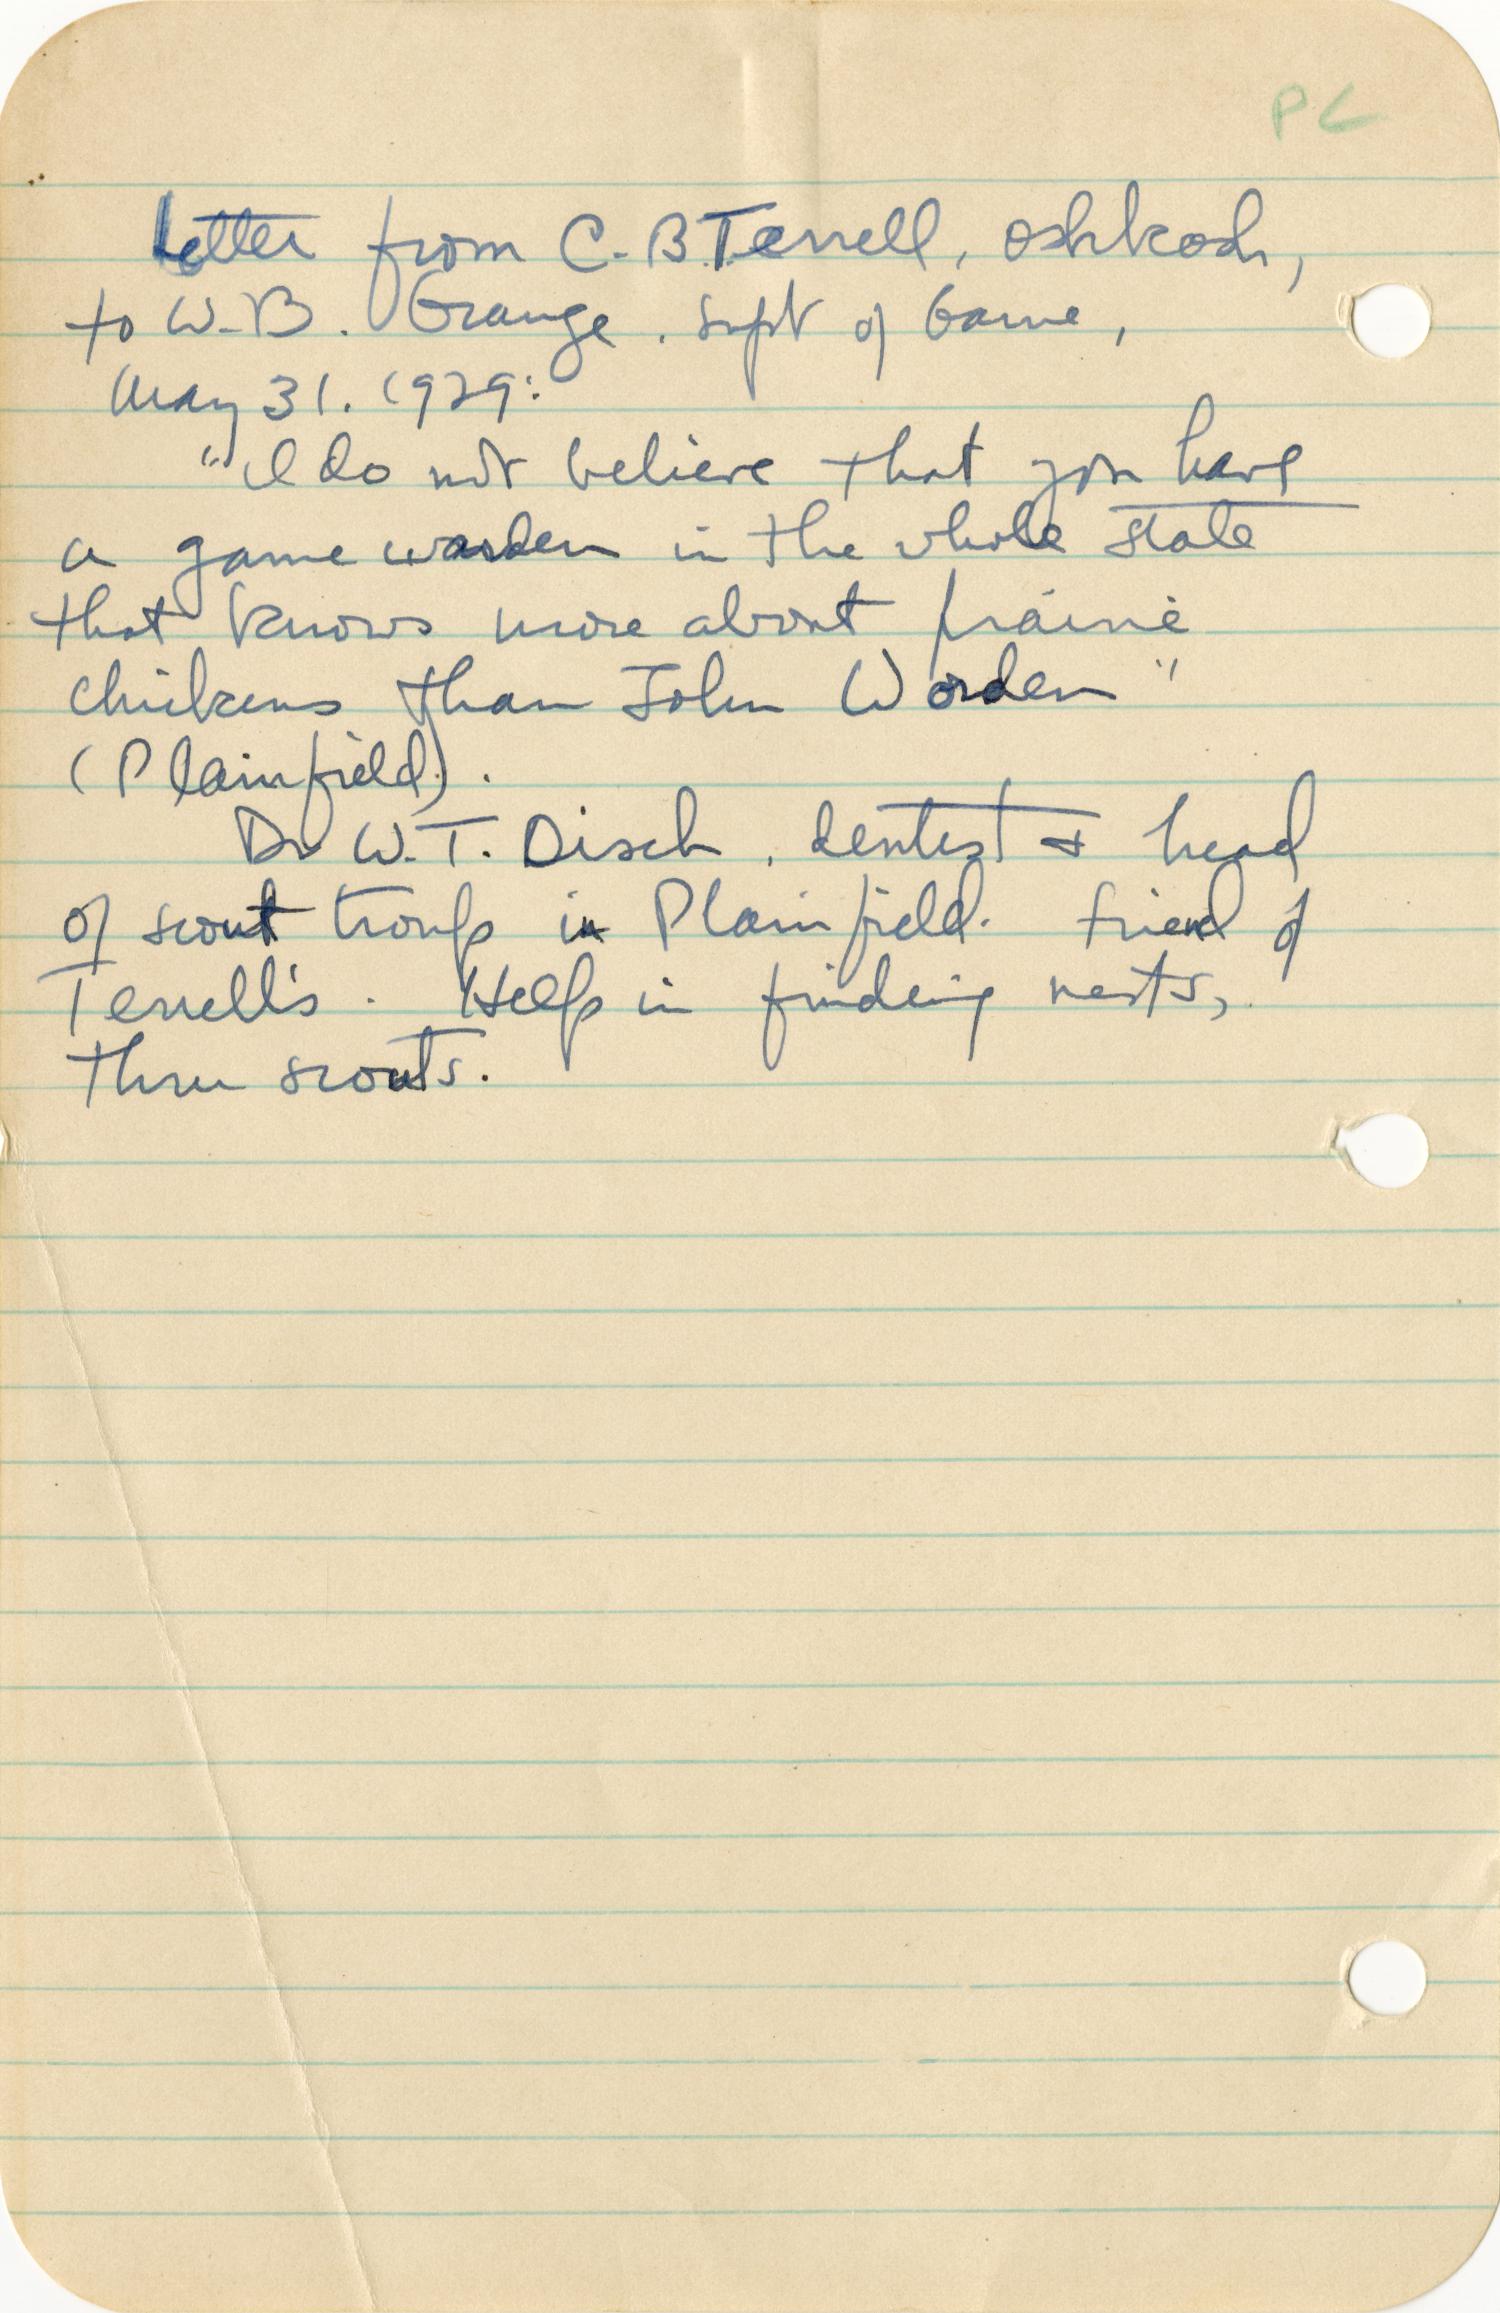 PC
Letter from C. B. Terrell, Oshkosh,
to W. B. Grange. Supt of Game,
May 31. 1929:
"I do not believe that you have
a game warden in the whole state
that knows more about prairie
chickens than John Worden"
(Plainfield).
Dr W. T. Disch, dentist & head
of scout troup in Plainfield. Friend of
Terrell's. Help in finding nests,
thru scouts.